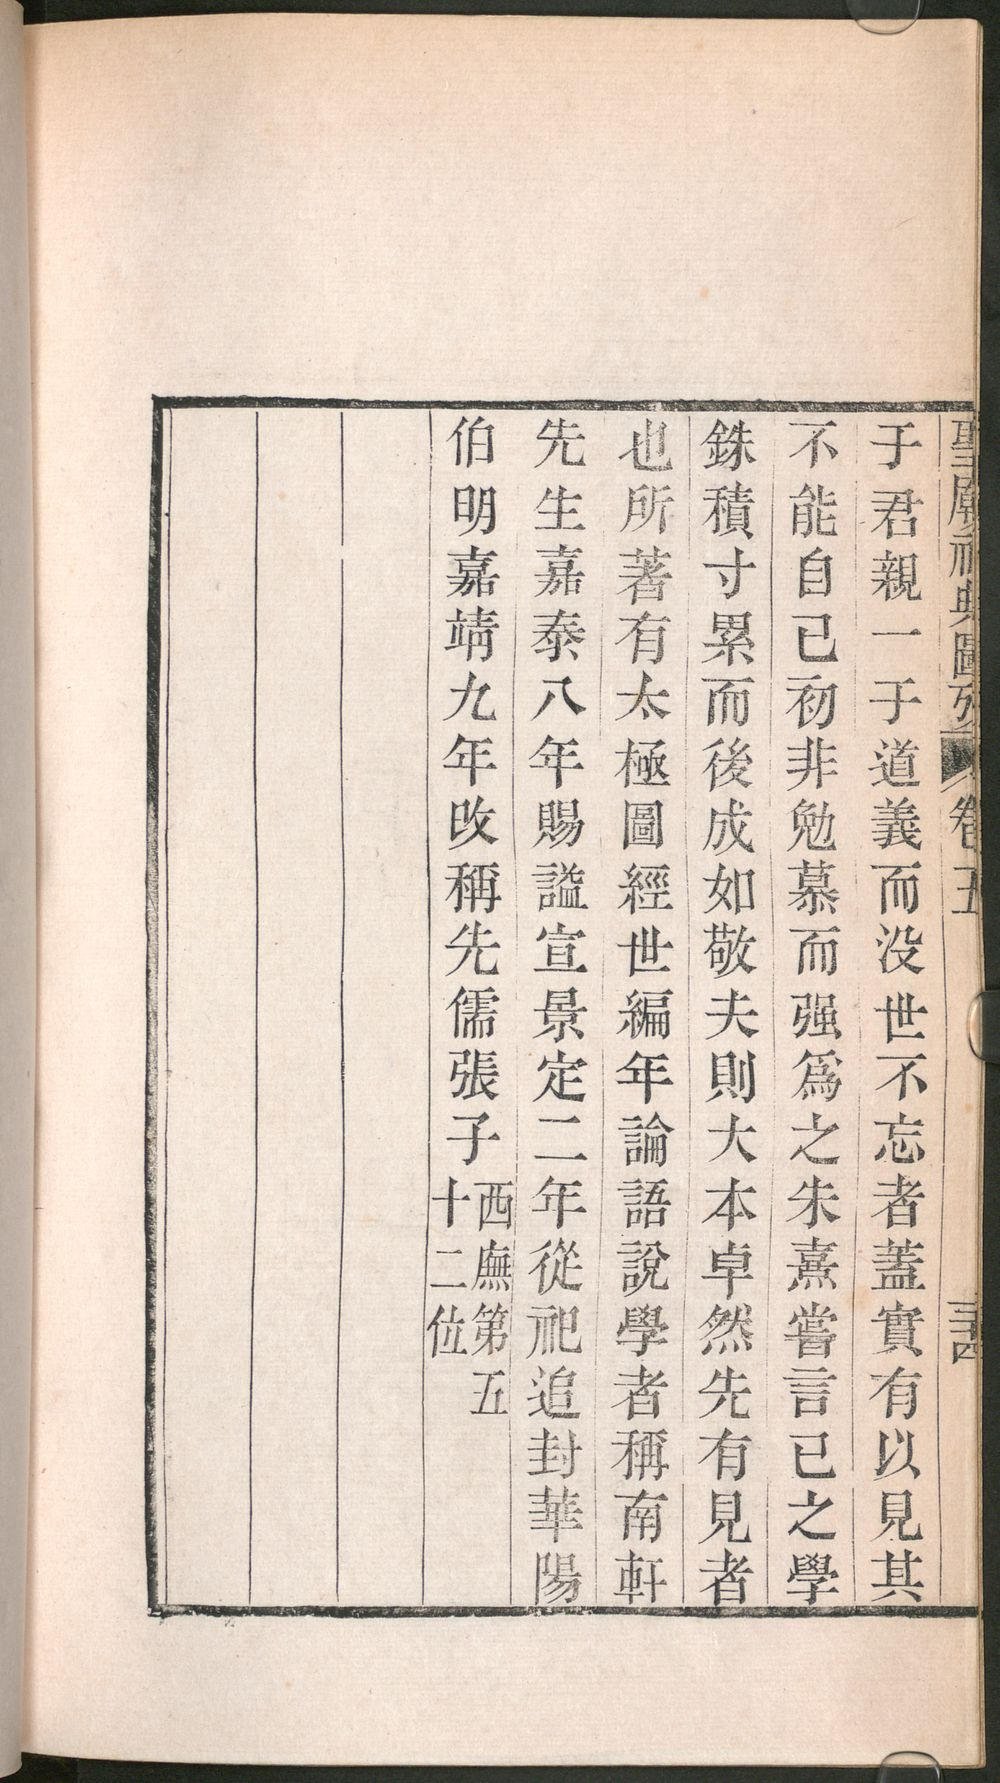 聖廟祀典圖攷 卷五 三十四
于君親一于道義而没世不忘者蓋實有以見其
不能自已初非勉慕而强爲之朱熹嘗言已之學
銖積寸累而後成如敬夫則大本卓然先有見者
也所著有太極圖經世編年論語說學者稱南軒
先生嘉泰八年賜謚宣景定二年從祀追封華陽
伯明嘉靖九年改稱先儒張子
西廡第五
十二位